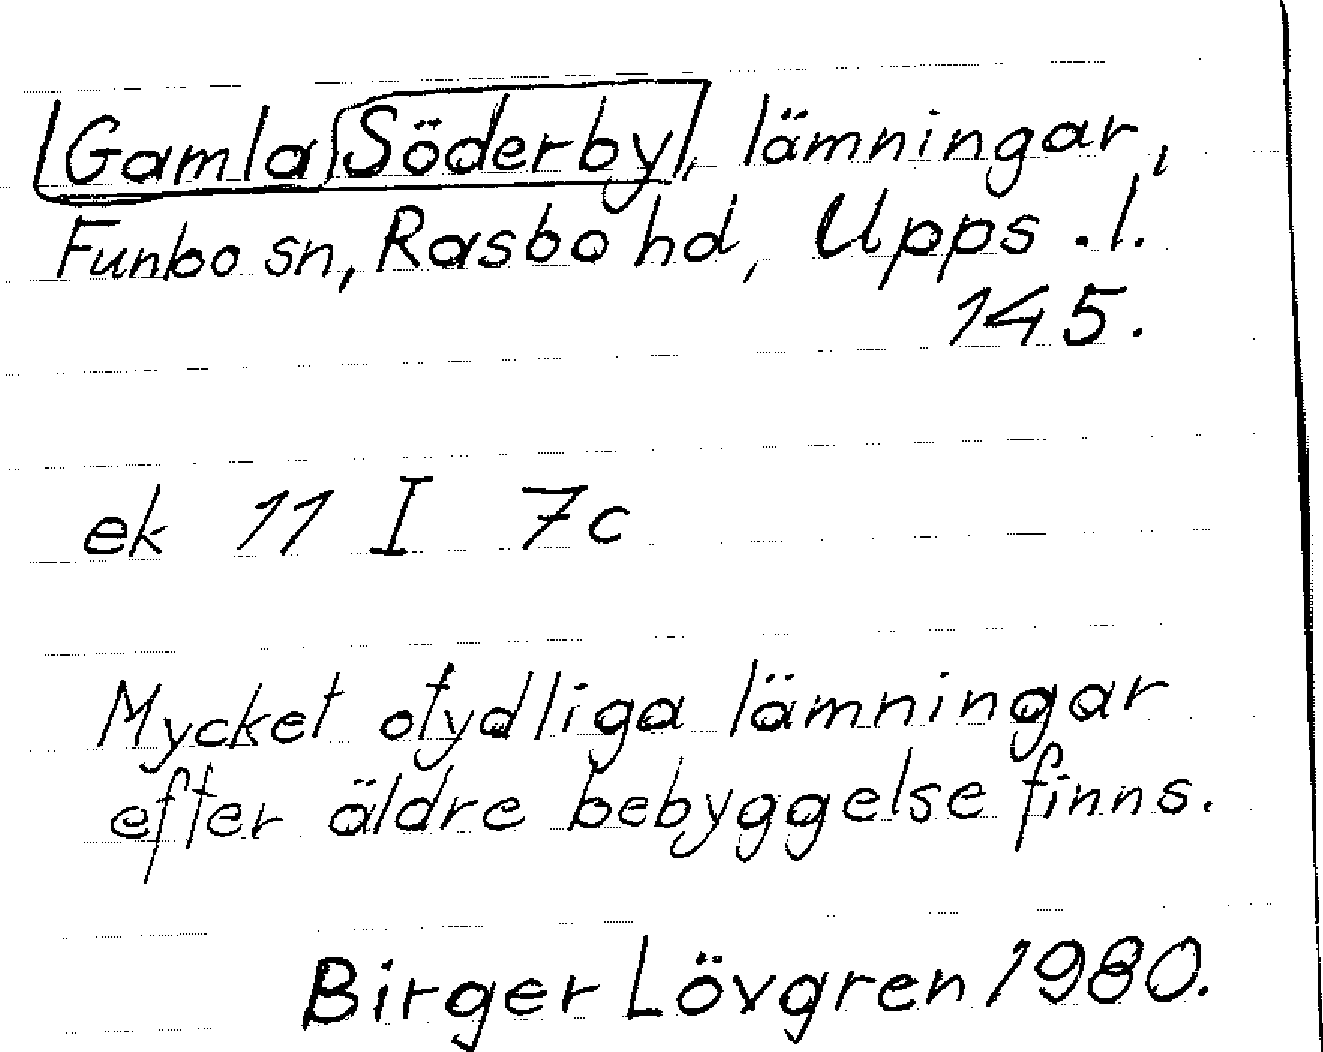 Gamla Söderby, lämningar,
Funbo sn, Rasbo hd, Upps.l.
145.
ek 11 I 7c
Mycket otydliga lämningar
efter äldre bebyggelse finns.
Birger Lövgren 1980.